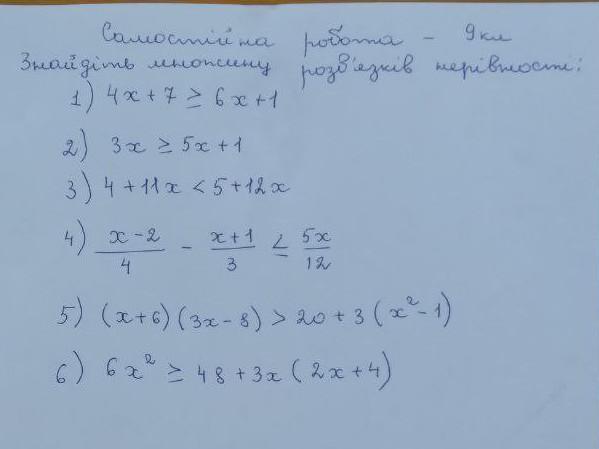 Самостійна робота - 9кл
Знайдіть множину розв'язків нерівності:
1) 4x+7 ≥ 6x+1
2) 3x ≥ 5x+1
3) 4+11x < 5+12x
4) (x-2)/4 - (x+1)/3 ≤ 5x/12
5) (x+6)(3x-8) > 20+3(x²-1)
6) 6x² ≥ 48+3x(2x+4)